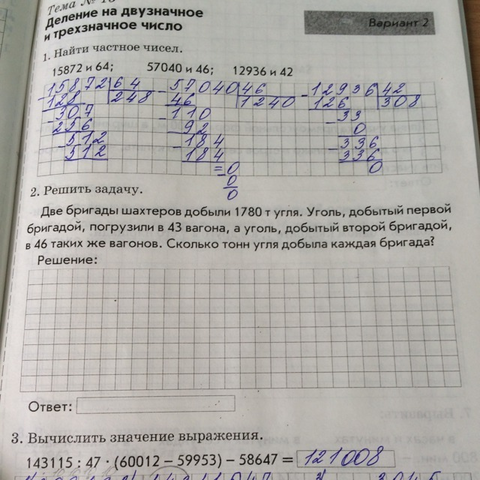 Деление на двузначное
и трехзначное число
Вариант 2
1. Найти частное чисел.
15872 и 64; 57040 и 46; 12936 и 42
15872 64 57040 46 12936 42
128 248 46 1240 126 308
307 110 33
256 92 0
512 184 336
512 184 336
=0 0
0
0
2. Решить задачу.
Две бригады шахтеров добыли 1780 т угля. Уголь, добытый первой
бригадой, погрузили в 43 вагона, а уголь, добытый второй бригадой,
в 46 таких же вагонов. Сколько тонн угля добыла каждая бригада?
Решение:
Ответ:
3. Вычислить значение выражения.
143115 : 47 · (60012 – 59953) – 58647 = 121008